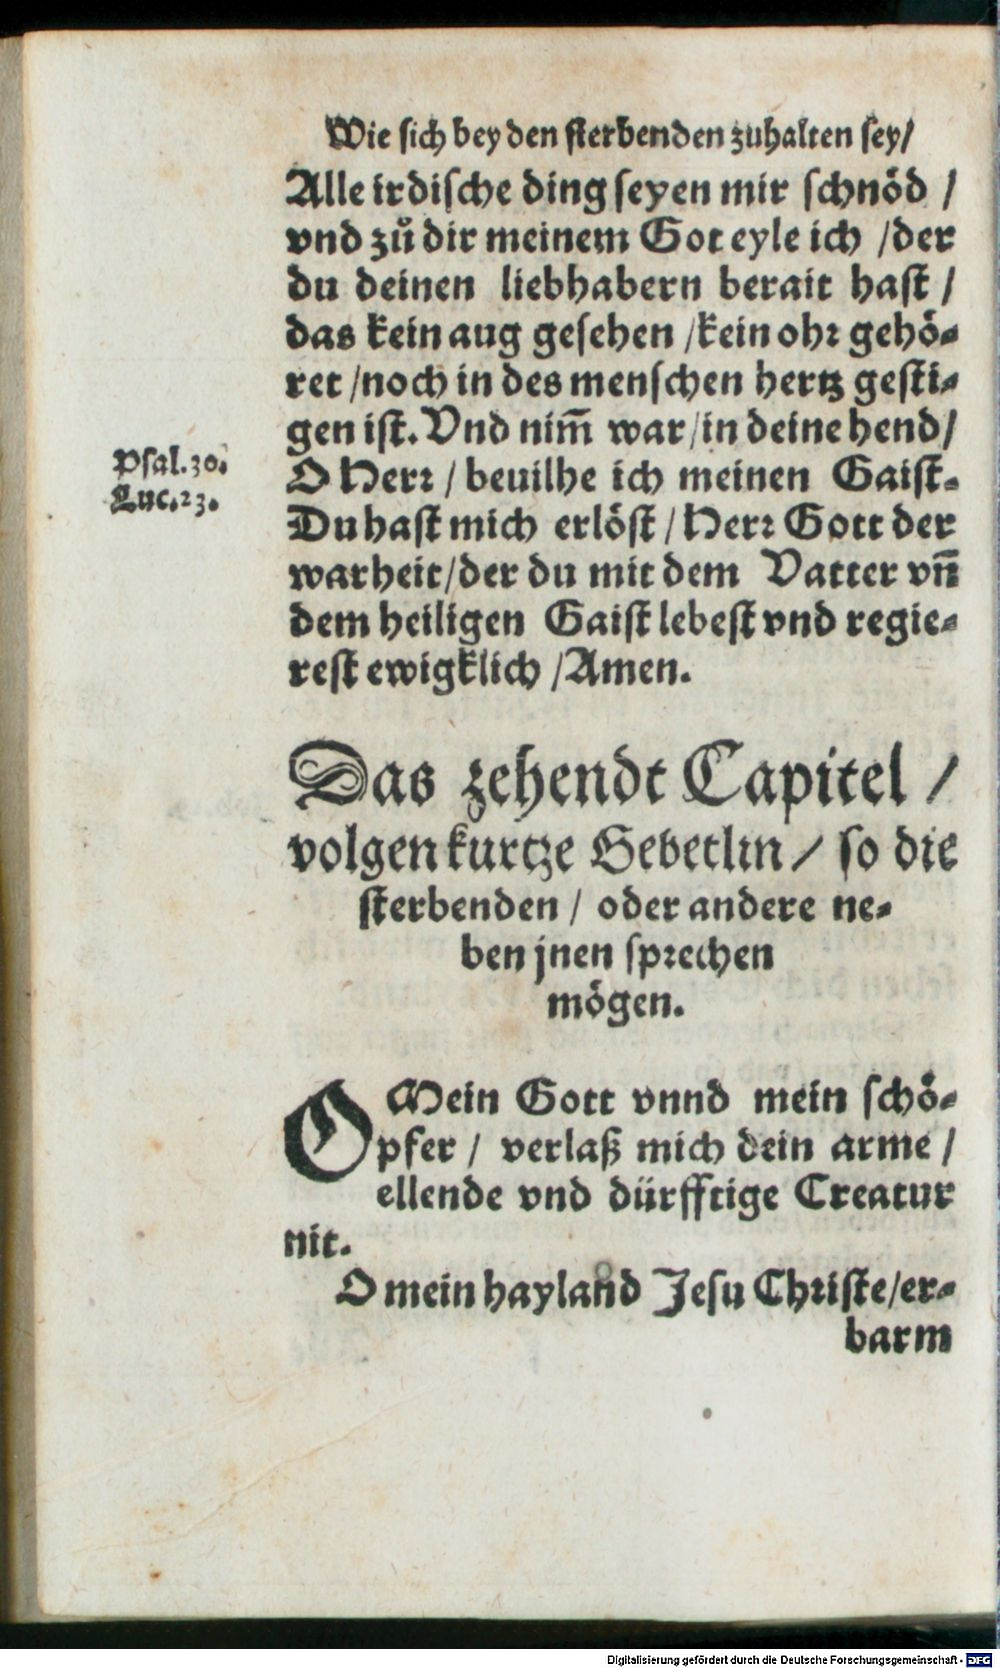 Wie sich bey den sterbenden zuhalten sey/
Alle irdische ding seyen mir schnöd /
vnd zů dir meinem Got eyle ich /der
du deinen liebhabern berait hast /
das kein aug gesehen /kein ohr gehö-
ret /noch in des menschen hertz gesti-
gen ist. Vnd nim̃ war/in deine hend/
Psal.30.
O Herr / beuilhe ich meinen Gaist.
Luc.23.
Du hast mich erlöst / Herr Gott der
warheit/der du mit dem Vatter vñ
dem heiligen Gaist lebest vnd regie-
rest ewigklich /Amen.
Das zehendt Capitel /
volgen kurtze Gebetlin / so die
sterbenden / oder andere ne-
ben jnen sprechen
mögen.
O Mein Gott vnnd mein schö-
pfer / verlaß mich dein arme /
ellende vnd dürfftige Creatur
nit.
O mein hayland Jesu Christe/er-
barm
Digitalisierung gefördert durch die Deutsche Forschungsgemeinschaft - DFG